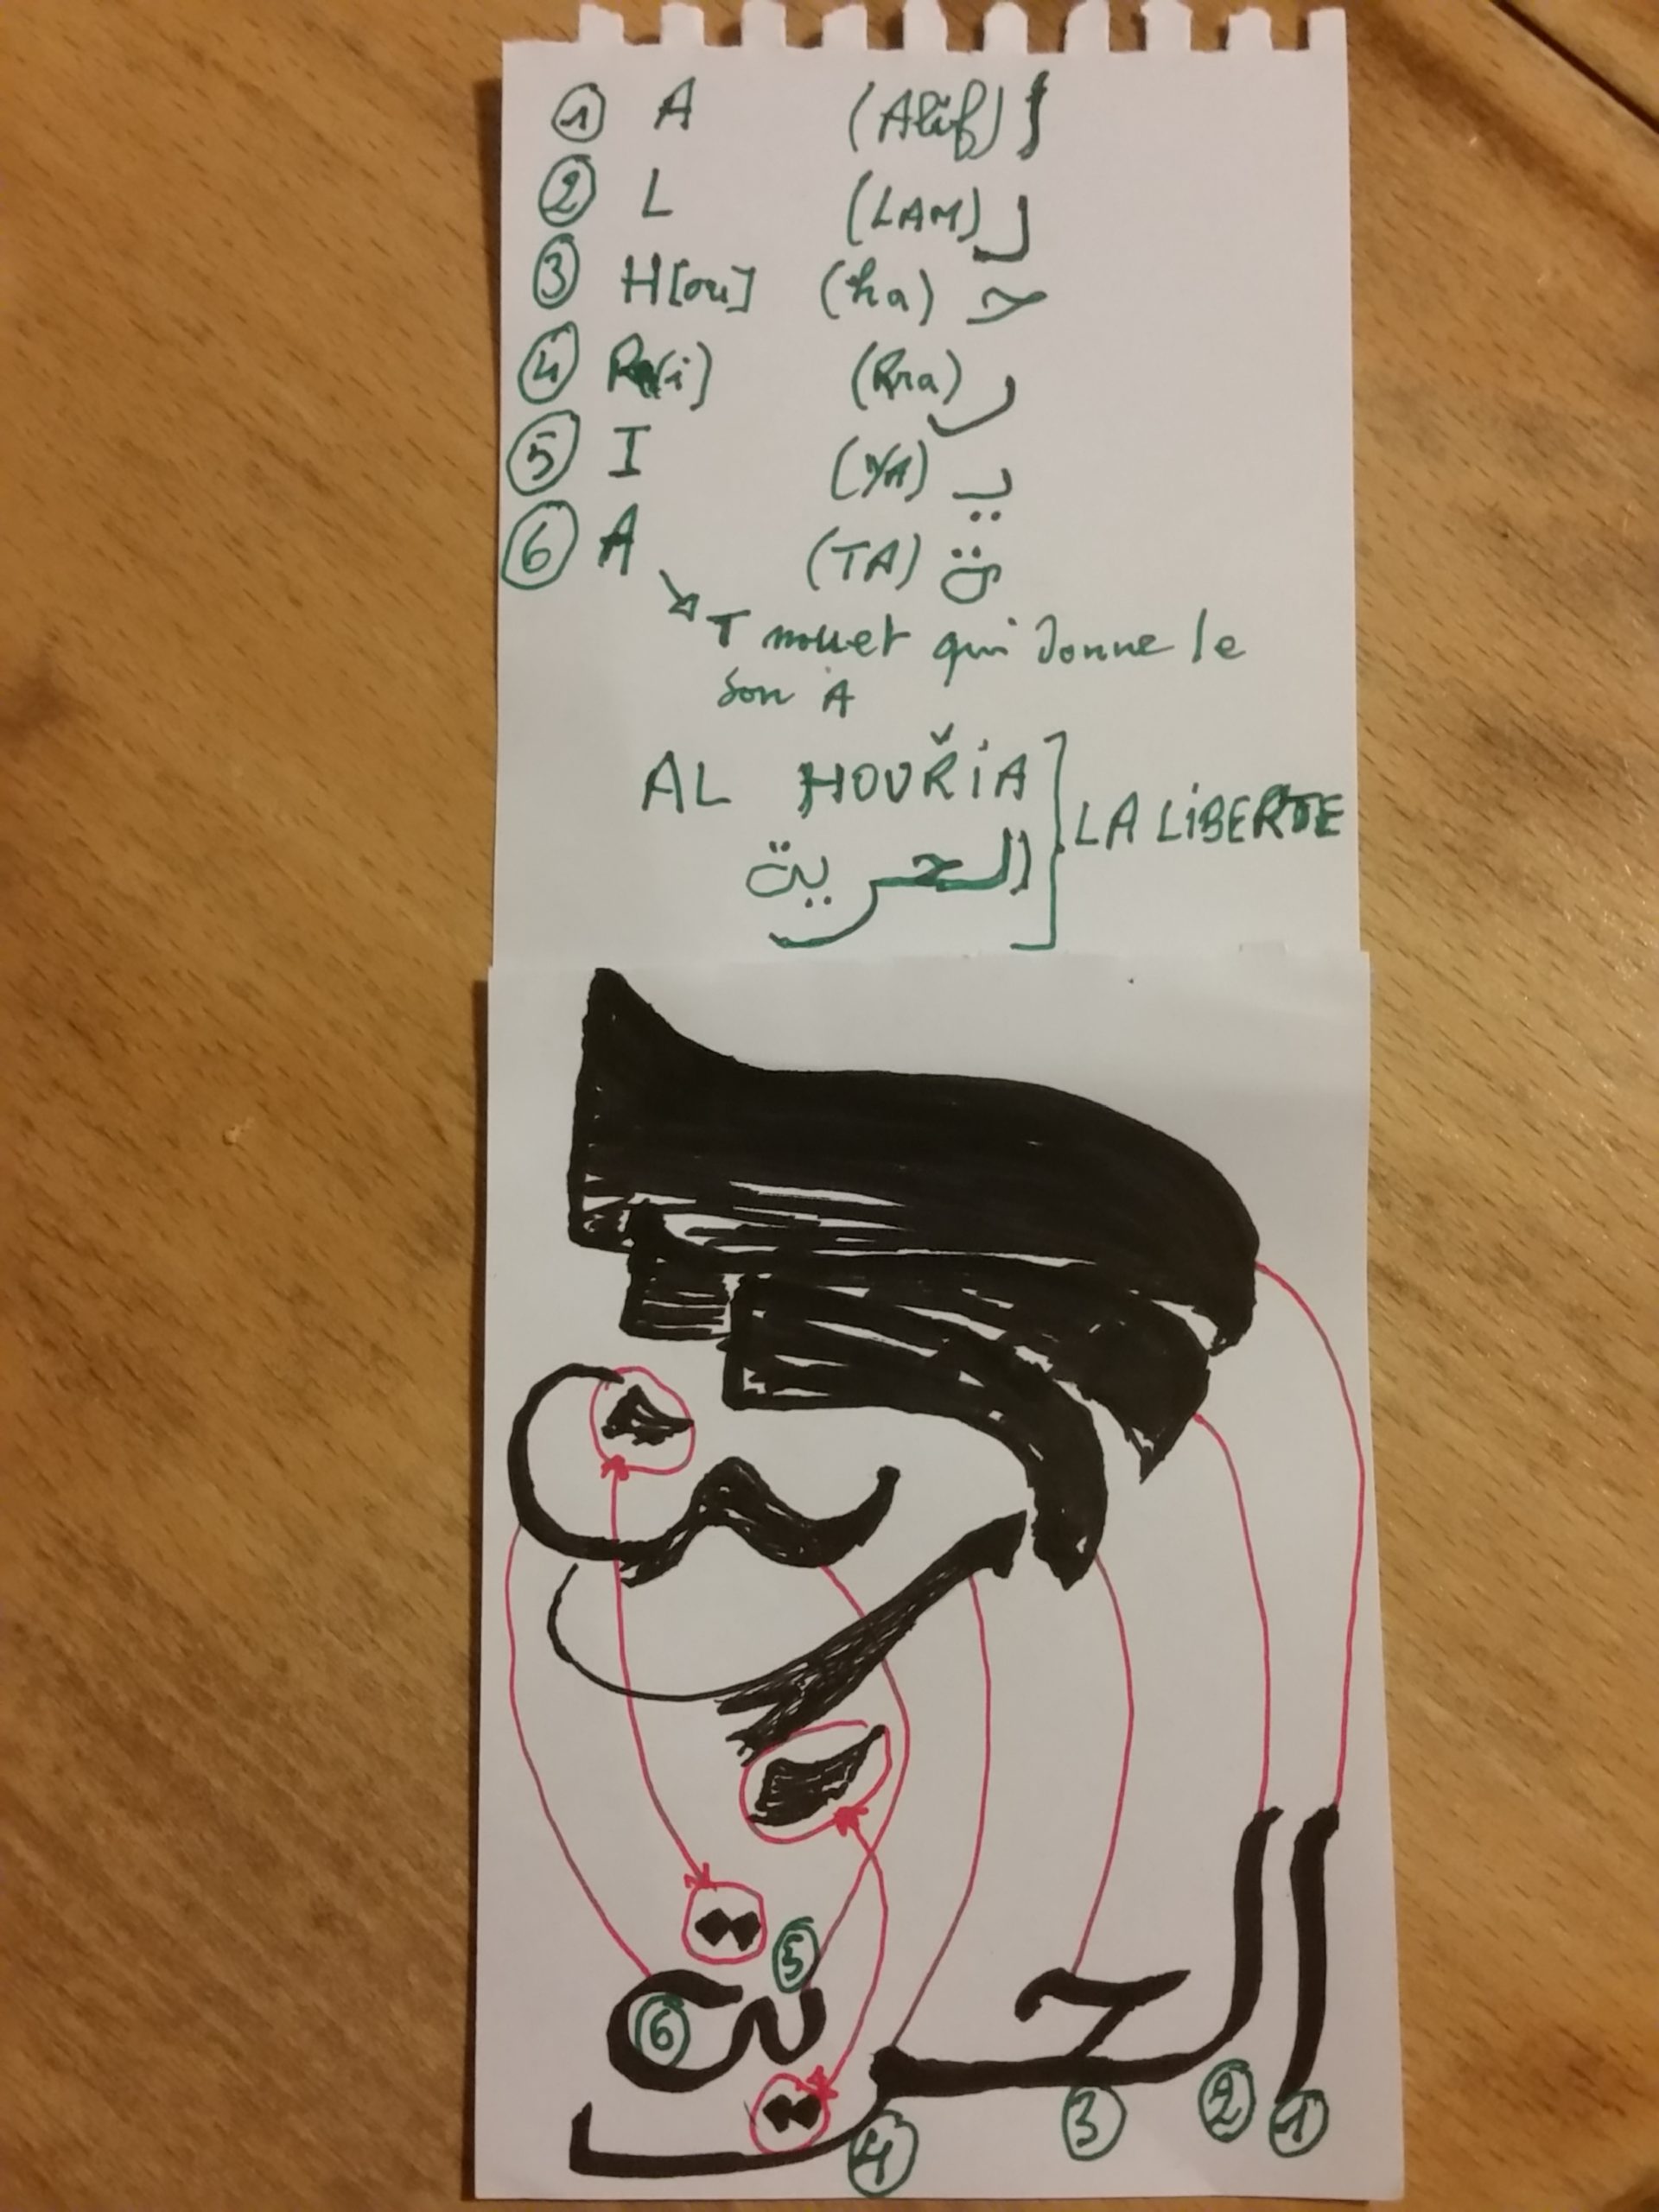 ① A (Alif) ا
② L (LAM) ل
③ H[ou] (ha) ح
④ R(i) (Rra) ر
⑤ I (YA) يـ
⑥ A (TA) ة
↘ T muet qui donne le
son A
AL HOUŘiA
الحرية
LA LiBERTE
الحرية
⑤
⑥
④ ③ ② ①